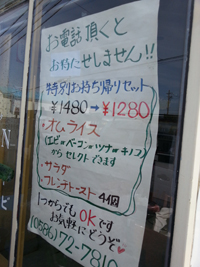 お電話頂くと
お待たせしません!!
特別お持ち帰りセット
¥1480→¥1280
・オムライス
(エビorベーコンorツナorキノコ)
からセレクトできます
・サラダ
・フレンチトースト 4個
1つからでもOKです
お気軽にどうぞ♥
(0586)72-7810